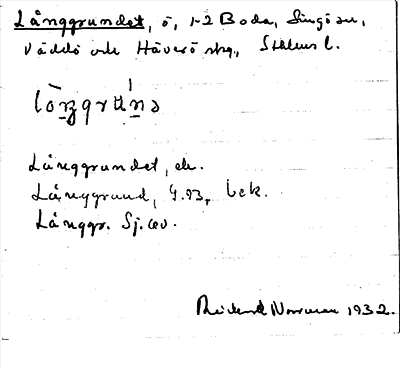 Långgrundet, ö, 1-2 Boda, Singö sn,
Väddö och Häverö skg, Sthlms l.
Långgrundet, ek.
Långgrund, G.93, bek.
Långgr. Sj.
Rickard Norrman 1932.